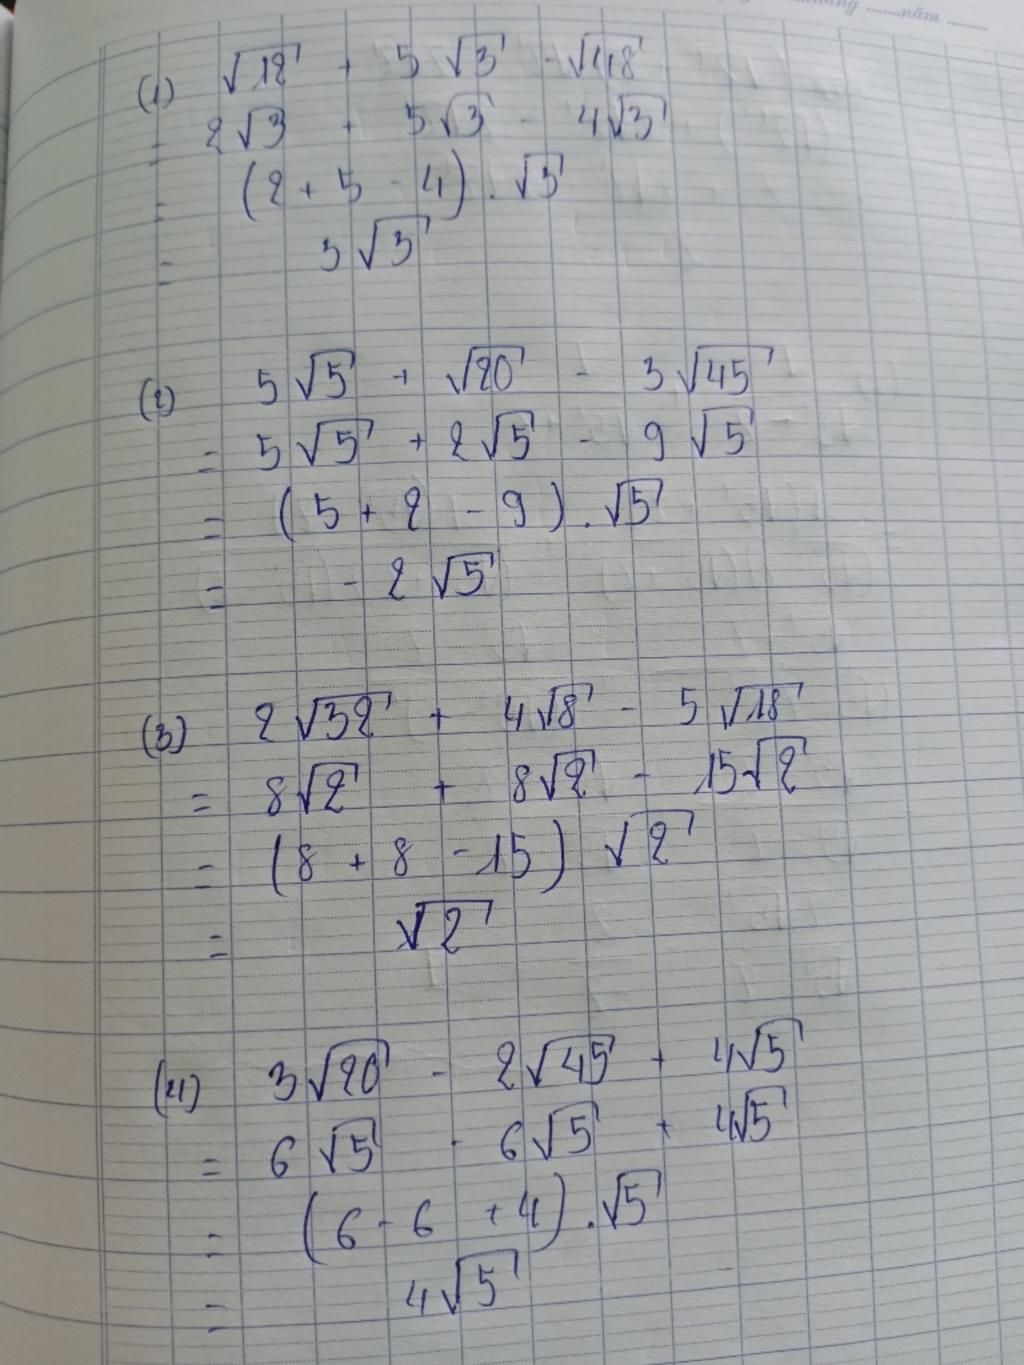 năm
(1) √12 + 5√3 - √48
= 2√3 + 5√3 - 4√3
= (2 + 5 - 4) . √3
= 3√3
(2) 5√5 + √20 - 3√45
= 5√5 + 2√5 - 9√5
= (5 + 2 - 9) . √5
= - 2√5
(3) 2√32 + 4√8 - 5√18
= 8√2 + 8√2 - 15√2
= (8 + 8 - 15) √2
= √2
(4) 3√20 - 2√45 + 4√5
= 6√5 - 6√5 + 4√5
= (6 - 6 + 4) . √5
= 4√5